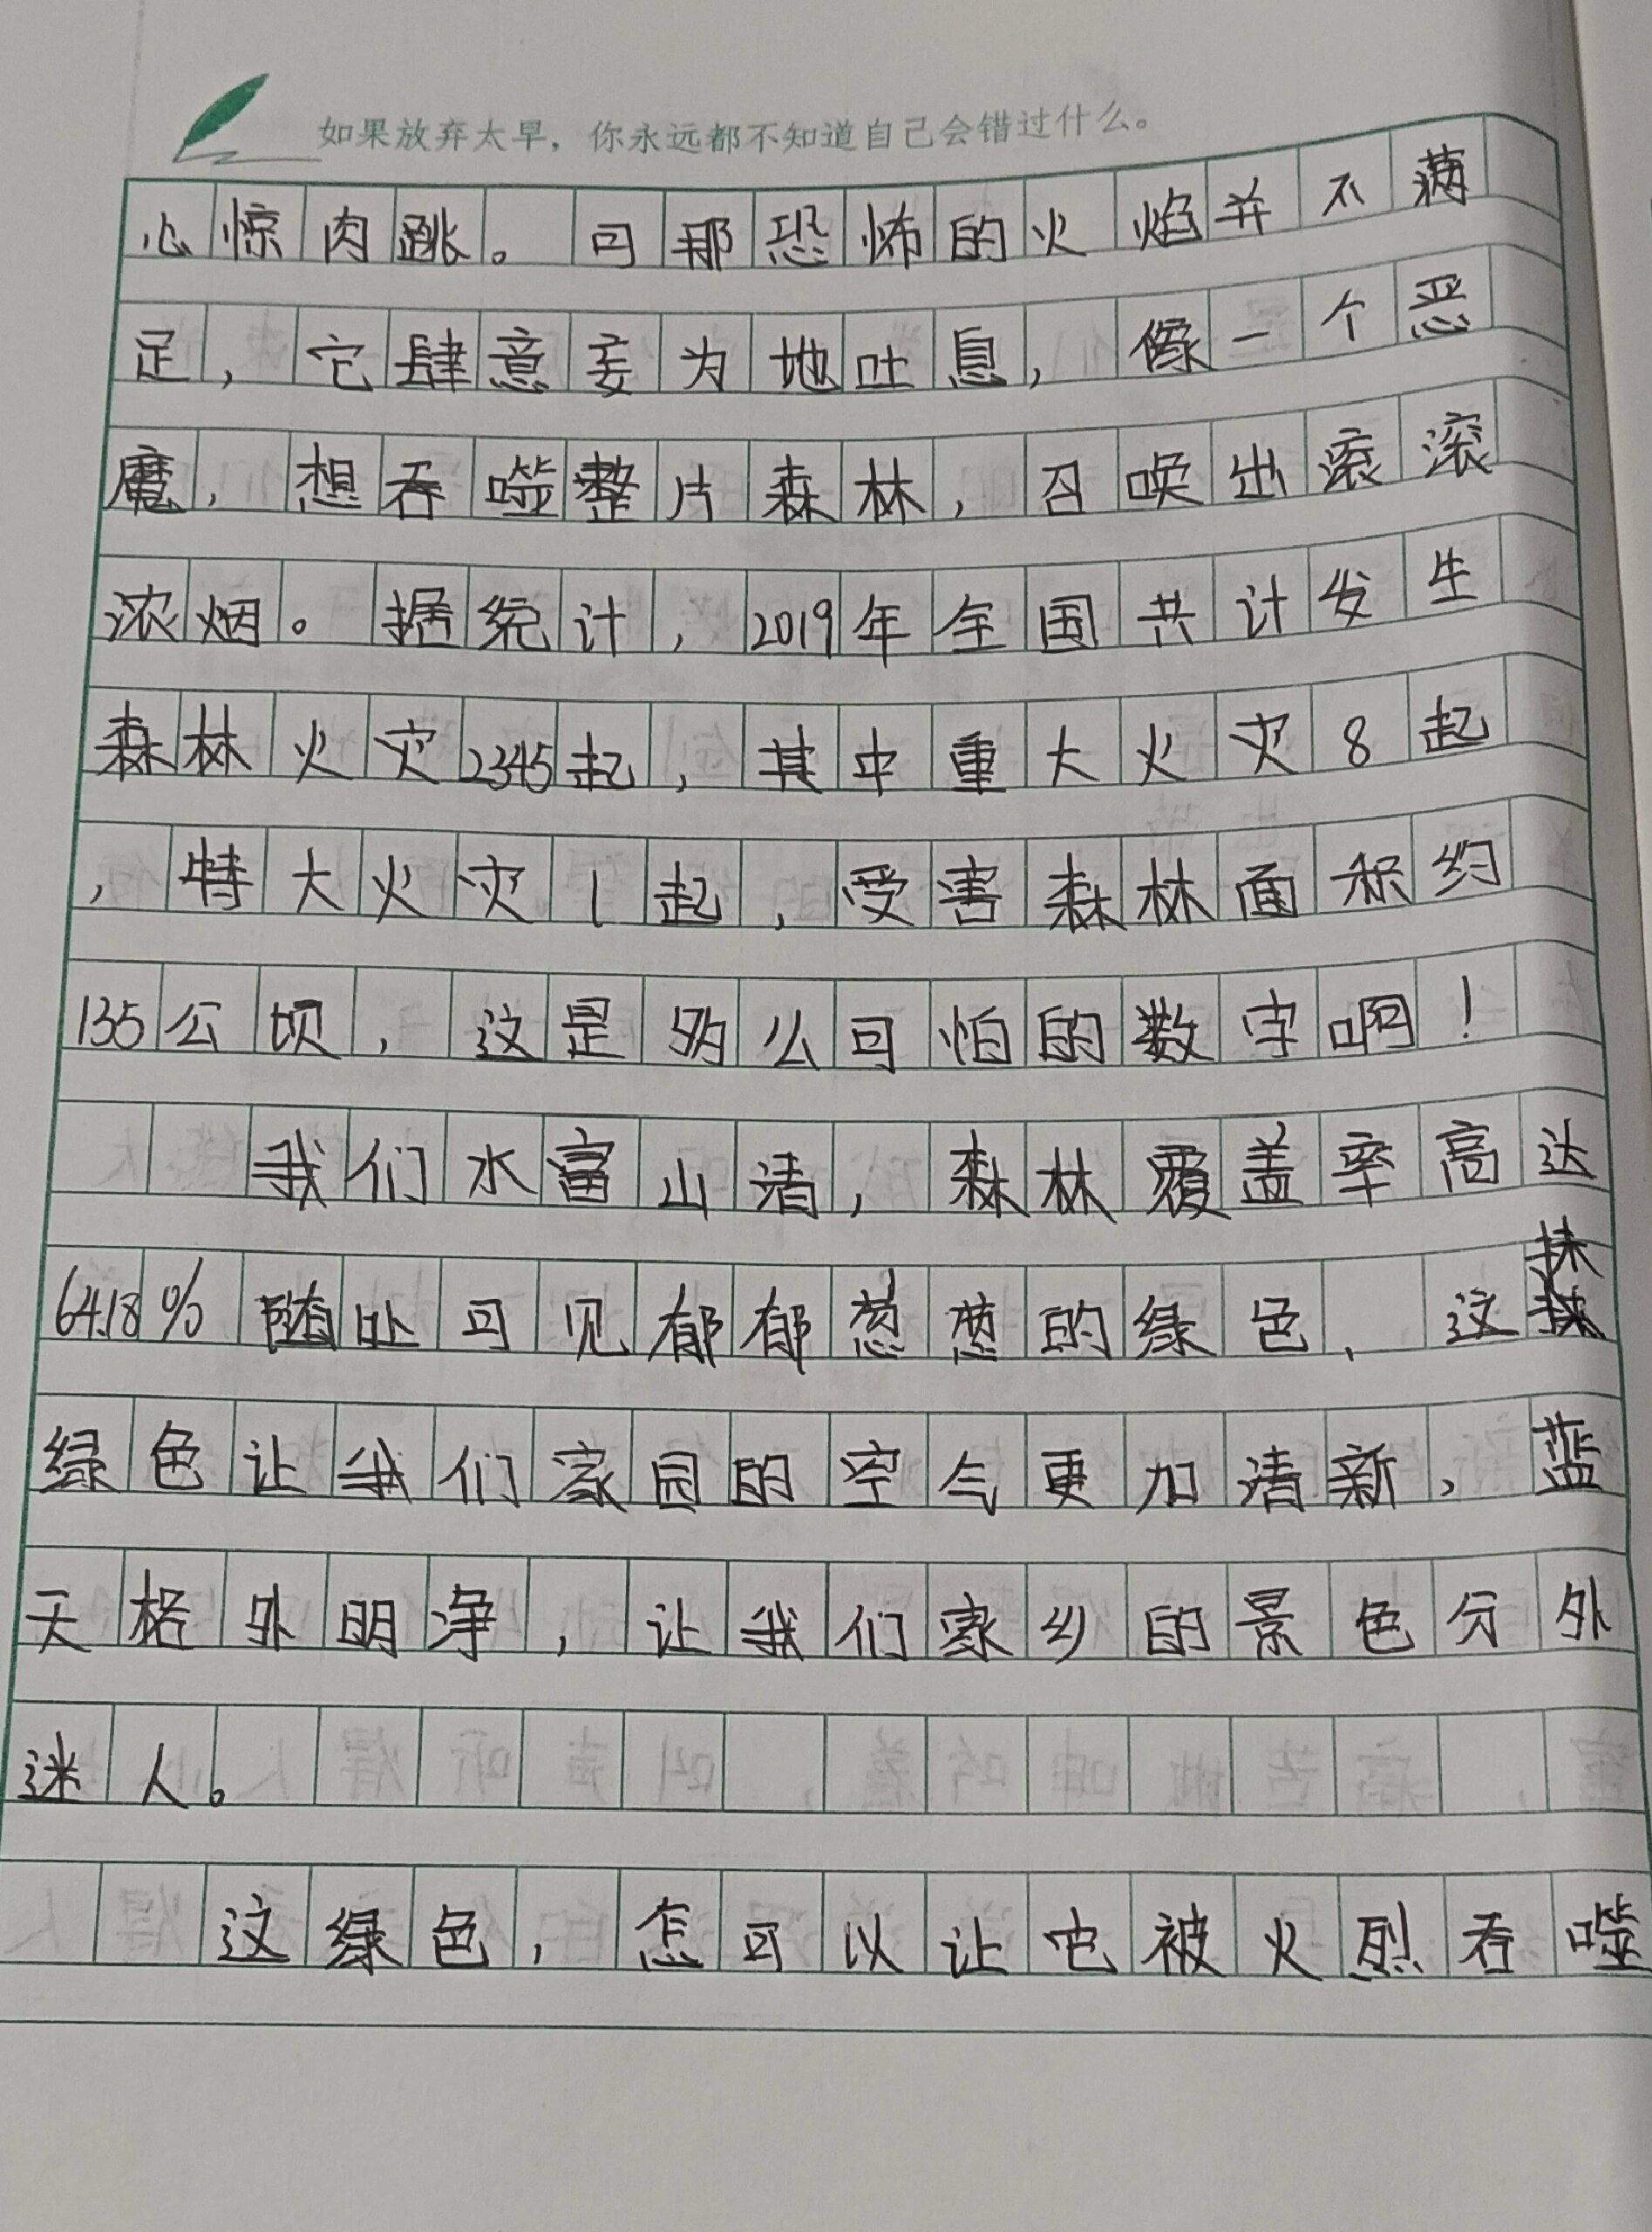 如果放弃太早，你永远都不知道自己会错过什么。
心惊肉跳。可那恐怖的火焰并不满
足，它肆意妄为地吐息，像一个恶
魔，想吞噬整片森林，召唤出滚滚
浓烟。据统计，2019年全国共计发生
森林火灾2345起，其中重大火灾8起
，特大火灾1起，受害森林面积约
135公顷，这是多么可怕的数字啊！
我们水富山清，森林覆盖率高达
64.18%随处可见郁郁葱葱的绿色，这抹
绿色让我们家园的空气更加清新，蓝
天格外明净，让我们家乡的景色分外
迷人。
这绿色，怎可以让它被火烈吞噬